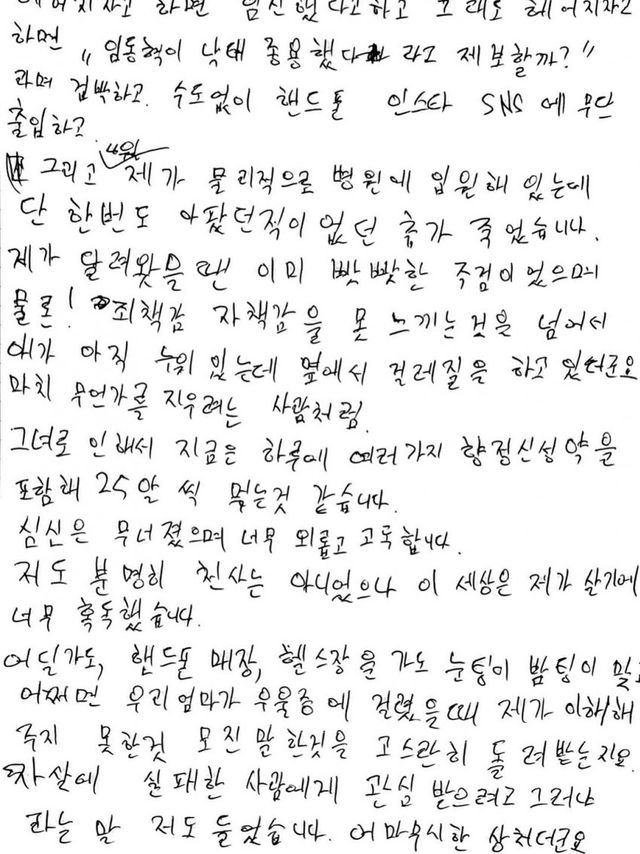 헤어지자고 하면 임신했다고하고 그래도 헤어지자고
하면 "임동혁이 낙태 종용했다 라고 제보할까?"
라며 겁박하고. 수도없이 핸드폰 인스타 SNS에 무단
출입하고
그리고 제가 물리적으로 병원에 입원해 있는데
단 한번도 아팠던적이 없던 휴가 죽었습니다.
제가 달려왔을 땐 이미 빳빳한 주검이었으며
물론! 죄책감 자책감을 못 느끼는것을 넘어서
애가 아직 누워 있는데 옆에서 걸레질을 하고 있더군요
마치 무언가를 지우려는 사람처럼.
그녀로 인해서 지금은 하루에 여러가지 향정신성약을
포함해 25알 씩 먹는것 같습니다.
심신은 무너졌으며 너무 외롭고 고독합니다.
저도 분명히 천사는 아니었으나 이 세상은 제가 살기에
너무 혹독했습니다.
어딜가도, 핸드폰 매장, 헬스장을 가도 눈팅이 밤팅이
어쩌면 우리엄마가 우울증에 걸렸을때 제가 이해해
주지 못한것 모진 말한것을 고스란히 돌려받는지요.
자살에 실패한 사람에게 관심 받으려고 그러냐
라는 말 저도 들었습니다. 어마무시한 상처더군요